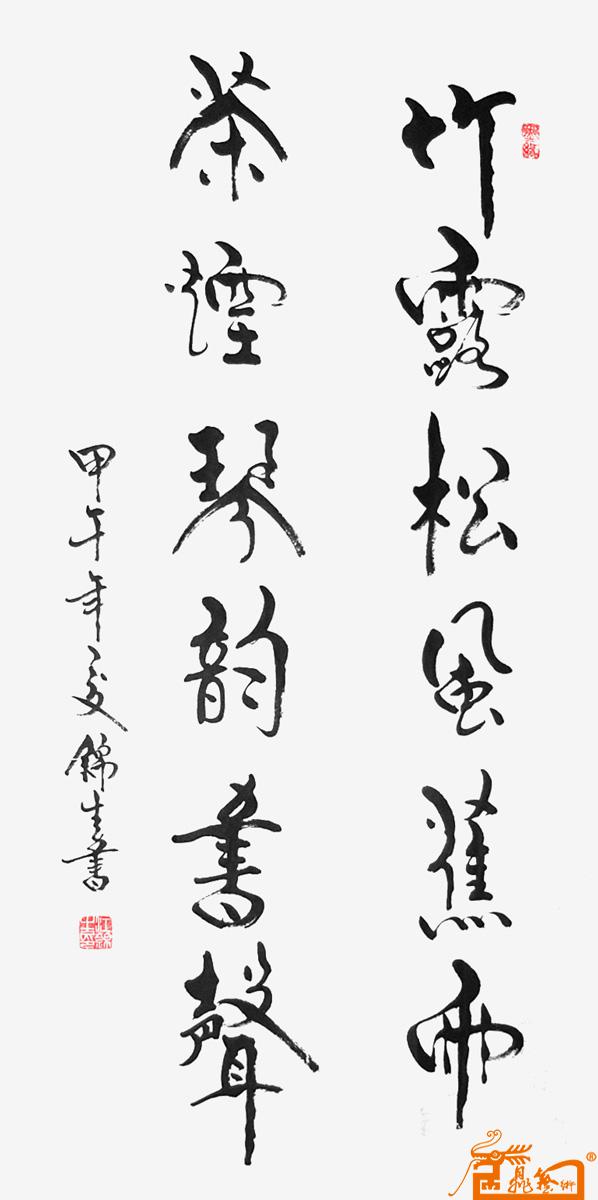 竹露松風蕉雨
茶煙琴韵書聲
甲午年夏錦生書